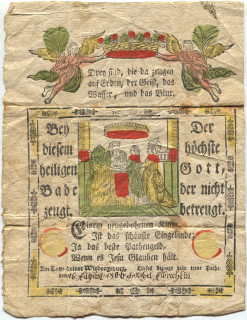 Drey sind, die da zeugen
auf Erden, der Geist, das
Wasser, und das Blut.
Bey
diesem
heiligen
Bade
zeugt,
Der
höchste
Gott,
der nicht
betreugt.
Einem neugebohrnen Kinde
Ist das schönste Eingebinde
Ja das beste Pathengeld,
Wenn es Jesu Glauben hält.
Am Tage deiner Wiedergeburt, Dieses bezeugt dein treue Pathe